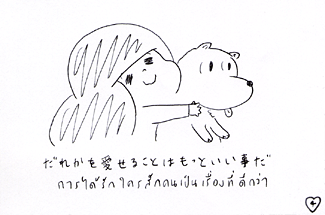 だれかを愛せることはもっといい事だ
การได้รักใครสักคนเป็นเรื่องที่ดีกว่า